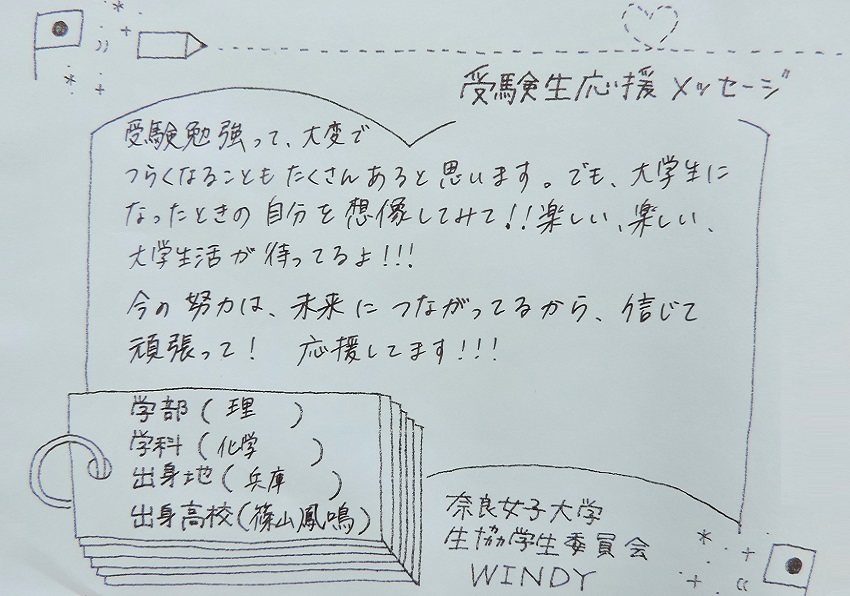 受験生応援メッセージ
受験勉強って、大変で
つらくなることもたくさんあると思います。でも、大学生に
なったときの自分を想像してみて!!楽しい、楽しい、
大学生活が待ってるよ!!!
今の努力は、未来につながってるから、信じて
頑張って! 応援してます!!!
学部(理 )
学科(化学 )
出身地(兵庫 )
出身高校(篠山鳳鳴)
奈良女子大学
生協学生委員会
WINDY